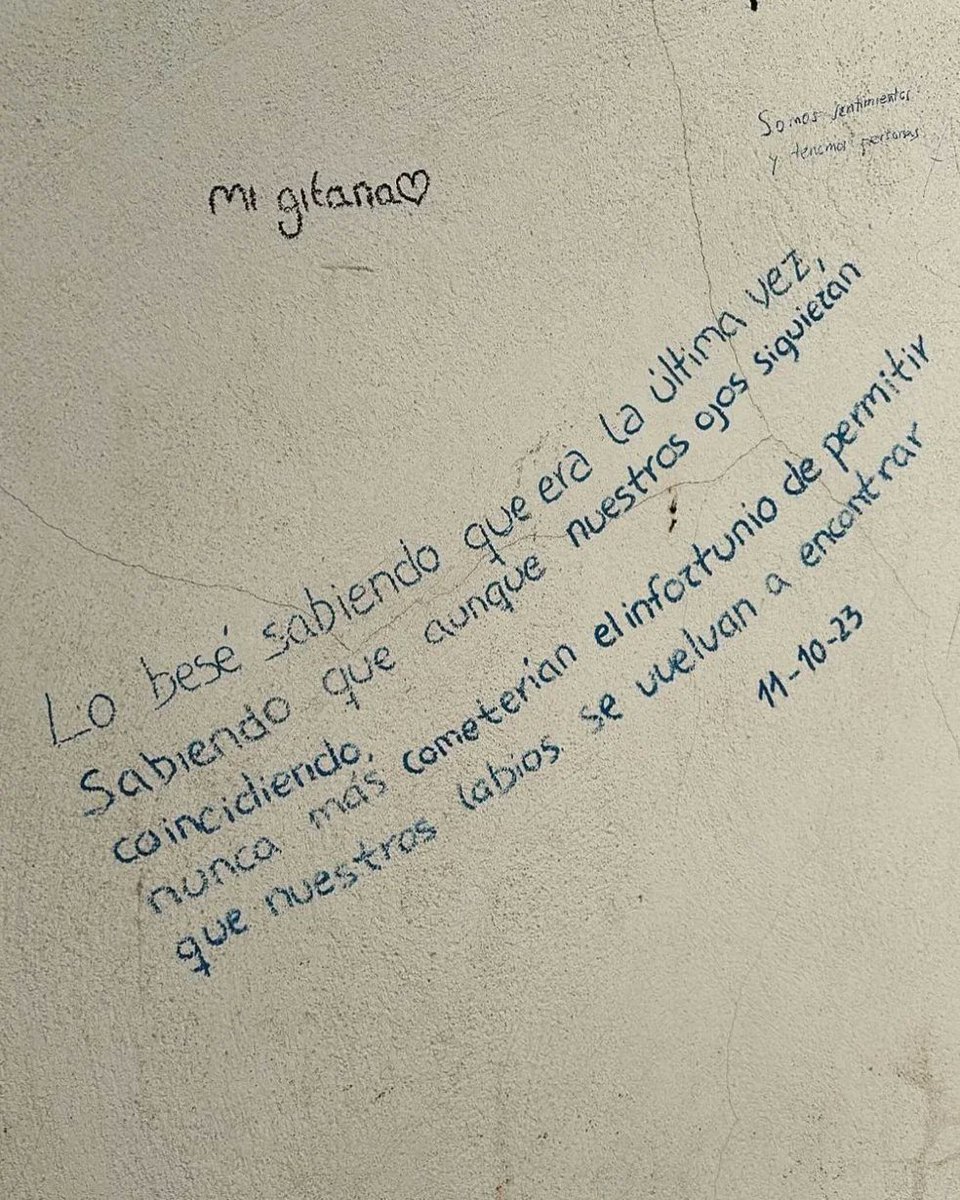 Somos sentimientos
y tenemos personas
mi gitana♡
Lo besé sabiendo que era la última vez,
Sabiendo que aunque nuestros ojos siguieran
coincidiendo,
nunca más cometerían el infortunio de permitir
que nuestros labios se vuelvan a encontrar
11-10-23